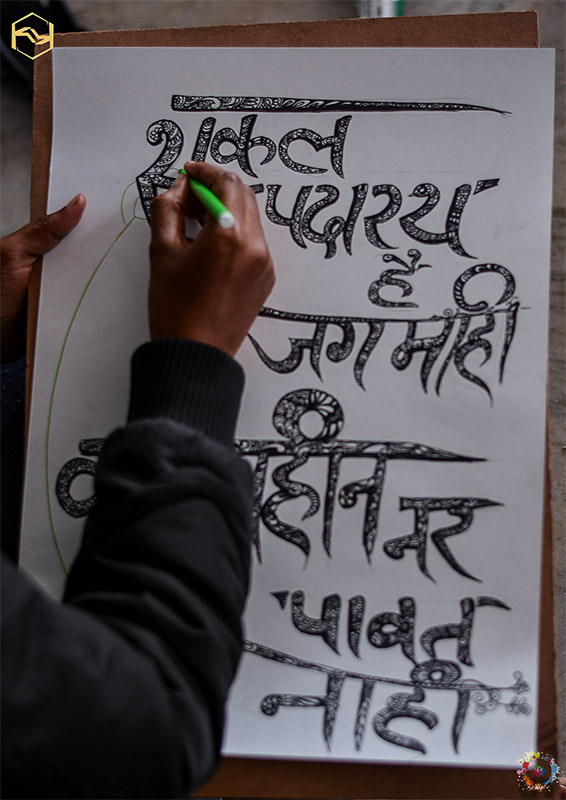 शकल
पदारथ
है
जग माही
नर
पाबत
नाही